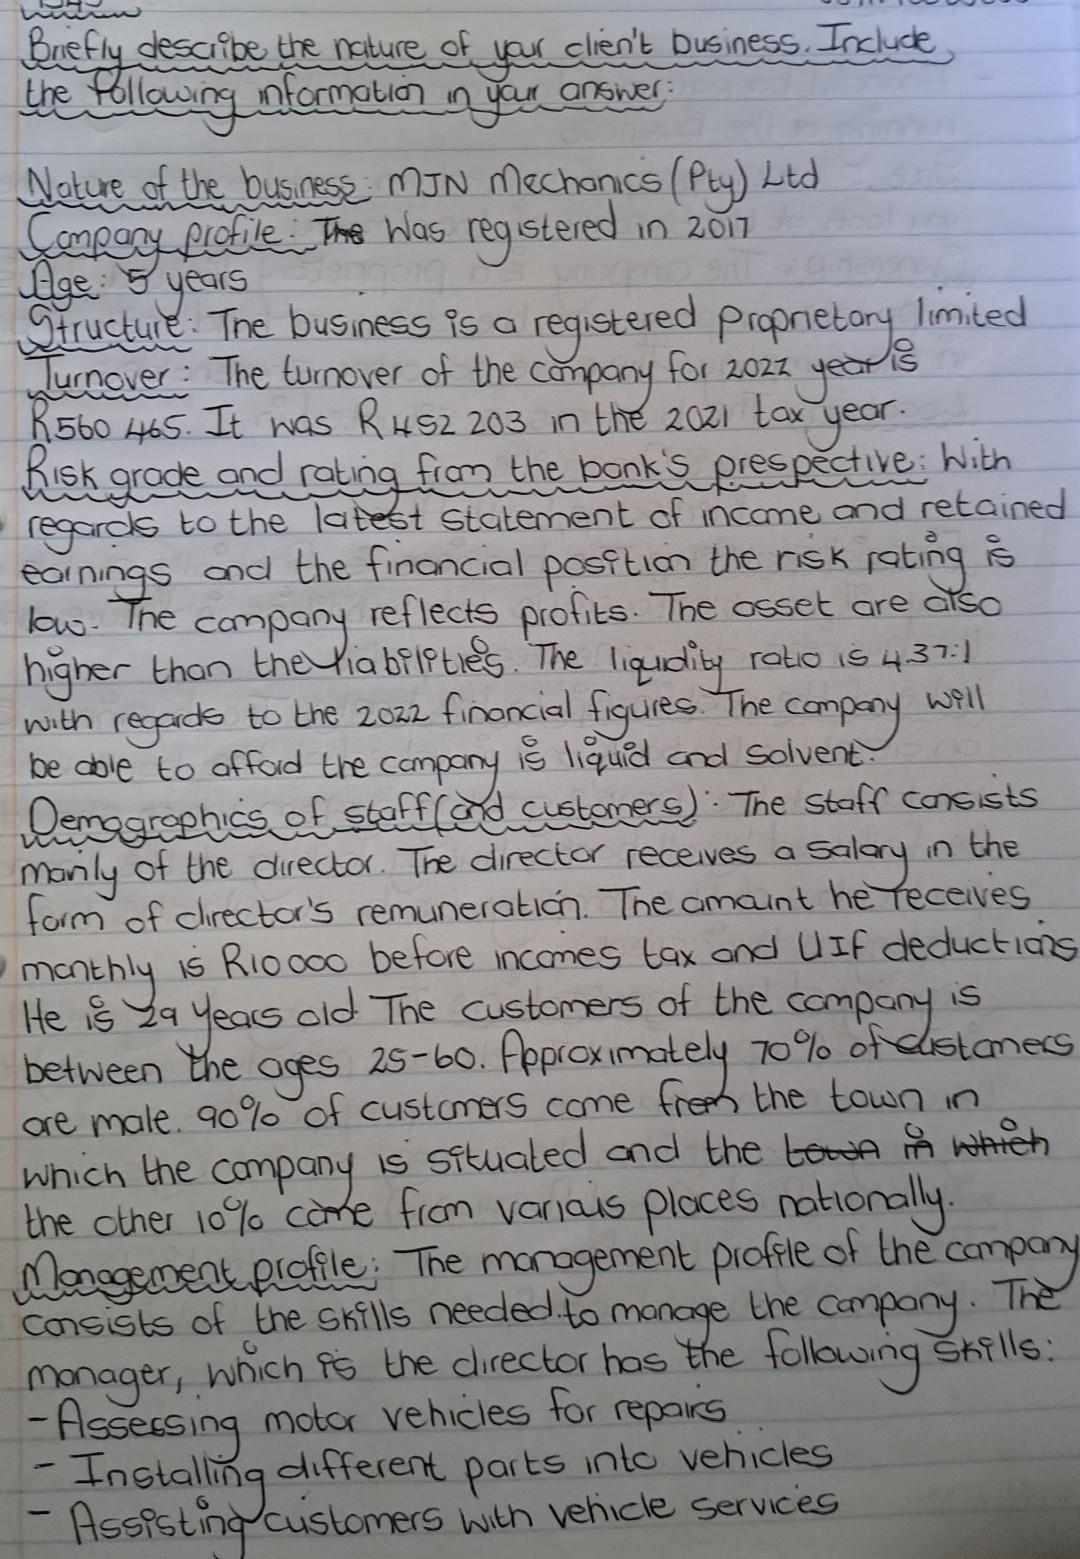 Briefly describe the nature of your clien't business. Include
the following information in your answer:
Nature of the business: MJN Mechanics (Pty) Ltd
Company profile: The Was registered in 2017
Age: 5 years
Structure: The business is a registered proprietary limited
Turnover: The turnover of the company for 2022 year is
R560 465. It was R452 203 in the 2021 tax year.
Risk grade and rating from the bank's prespective: With
regards to the latest statement of income and retained
earnings and the financial position the risk rating is
low. The company reflects profits. The asset are also
higher than the liabilities. The liquidity ratio is 4.37:1
with regards to the 2022 financial figures. The company will
be able to afford the company is liquid and solvent.
Demographics of staff (and customers): The staff consists
mainly of the director. The director receives a salary in the
form of director's remuneration. The amount he receives
monthly is R10 000 before incomes tax and UIF deductions
He is 29 years old. The customers of the company is
between the ages 25-60. Approximately 70% of customers
are male. 90% of customers come from the town in
which the company is situated and the town in which
the other 10% come from various places nationally.
Management profile: The management profile of the company
consists of the skills needed to manage the company. The
manager, which is the director has the following skills:
- Assessing motor vehicles for repairs
- Installing different parts into vehicles
- Assisting customers with vehicle services